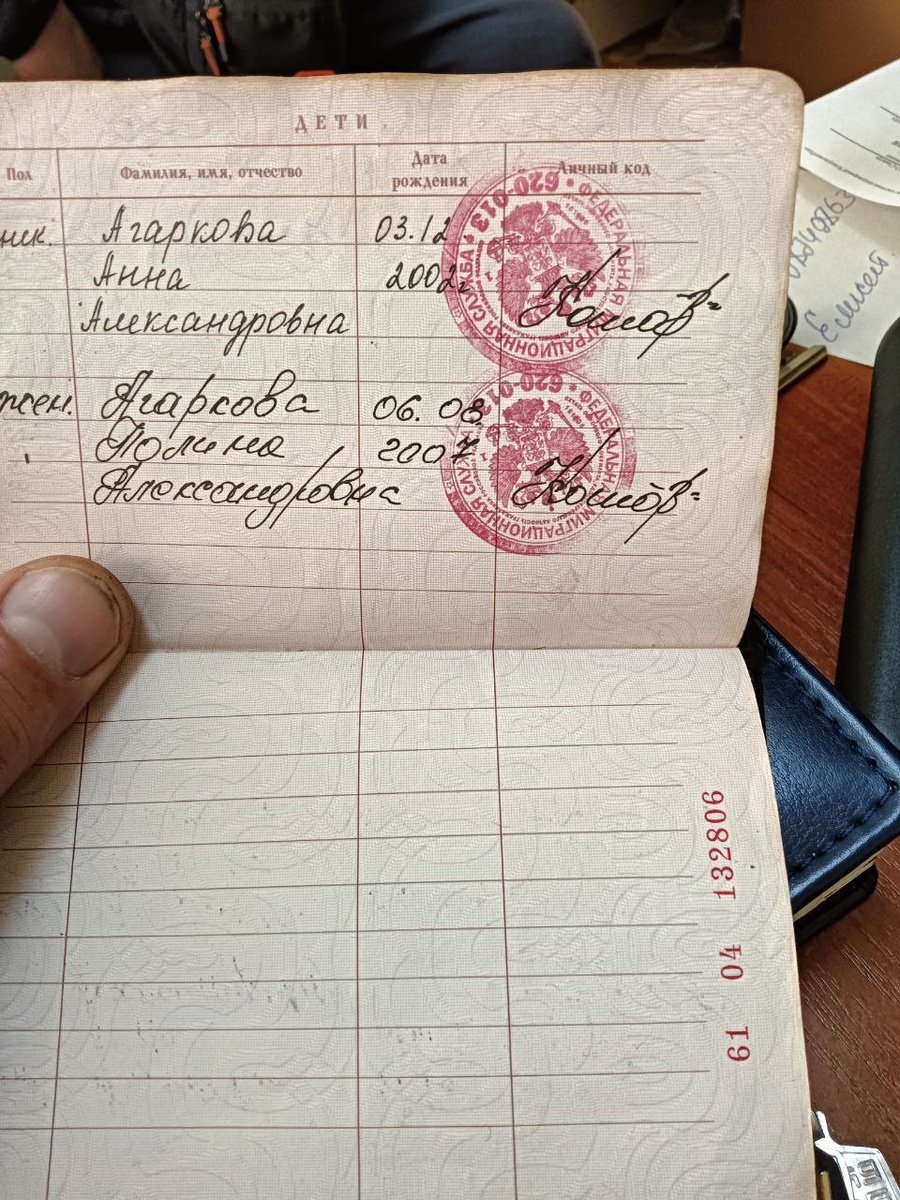 ДЕТИ
Пол Фамилия, имя, отчество Дата рождения Личный код
Агаркова 03.12
Анна 2002г.
Александровна
жен. Агаркова 06.08.
Полина 2007
Александровна
ФЕДЕРАЛЬНАЯ МИГРАЦИОННАЯ СЛУЖБА * 620-013 *
ФЕДЕРАЛЬНАЯ МИГРАЦИОННАЯ СЛУЖБА 620-013 *
61 04 132806
Елисей